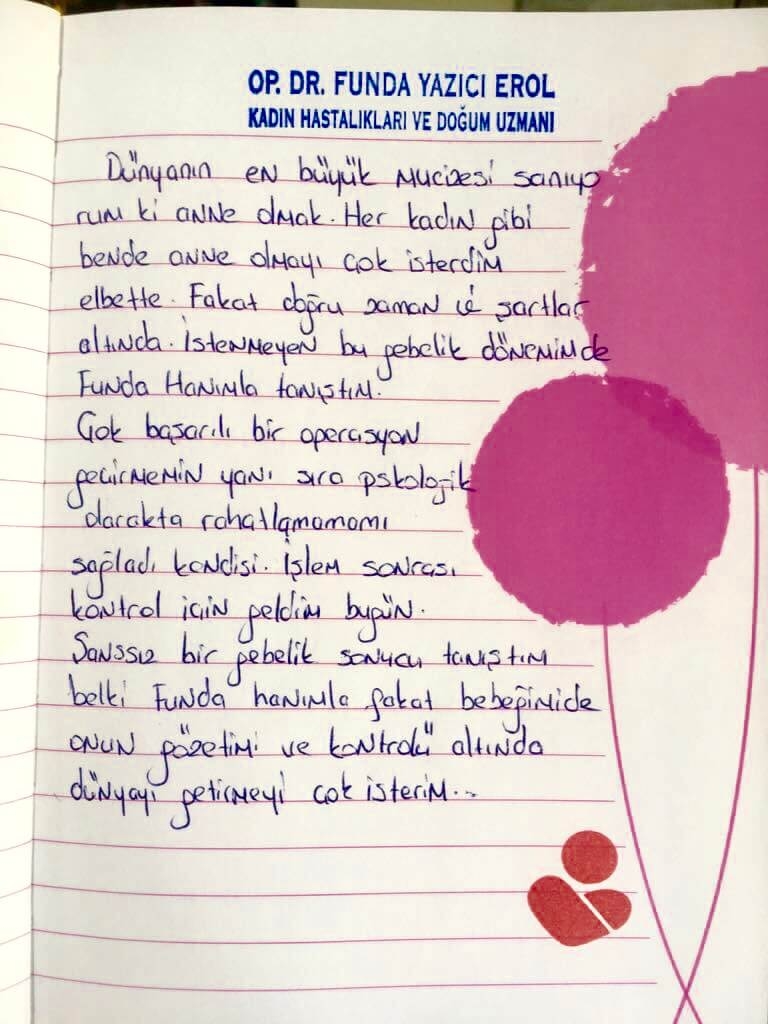 OP. DR. FUNDA YAZICI EROL
KADIN HASTALIKLARI VE DOĞUM UZMANI
Dünyanın en büyük mucizesi sanıyo
rum ki anne olmak. Her kadın gibi
bende anne olmayı çok isterdim
elbette. Fakat doğru zaman ve şartlar
altında. İstenmeyen bu gebelik döneminde
Funda Hanımla tanıştım.
Çok başarılı bir operasyon
geçirmemin yanı sıra pskolojik
olarakta rahatlamamı
sağladı kendisi. İşlem sonrası
kontrol için geldim bugün.
Şanssız bir gebelik sonucu tanıştım
belki Funda hanımla fakat bebeğimide
onun gözetimi ve kontrolü altında
dünyayı getirmeyi çok isterim...